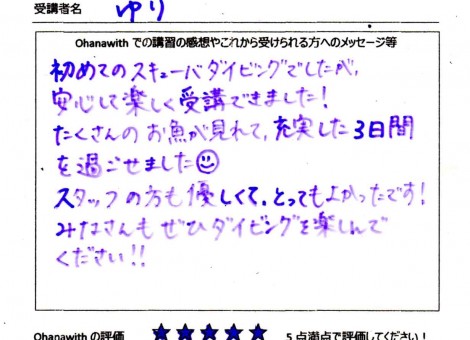 受講者名 ゆり
Ohanawith での講習の感想やこれから受けられる方へのメッセージ等
初めてのスキューバダイビングでしたが、
安心して楽しく受講できました！
たくさんのお魚が見れて、充実した3日間
を過ごせました☺
スタッフの方も優しくて、とってもよかったです！
みなさんもぜひダイビングを楽しんで
ください!!
Ohanawith の評価 ★★★★★ 5点満点で評価してください！